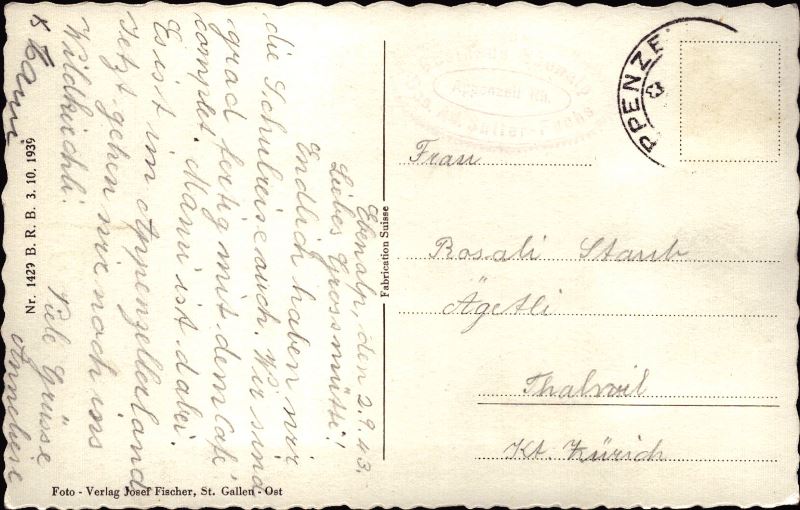 Ebenalp, den 2.9.43.
Liebes Grossmütti!
Endlich haben wir
die Schulreise auch. Wir sind
grad fertig mit dem Café
complet. Mami ist dabei.
Es ist im Appenzellerland
Jetzt gehen wir noch ins
Wildkirchli.
Viele Grüsse
Annebeve
Nr. 1429 B. R. B. 3. 10. 1939
Foto - Verlag Josef Fischer, St. Gallen - Ost
Fabrication Suisse
Appenzell Rh.
PPENZE
Frau
Rosali Staub
Ägetli
Thalwil
Kt. Zürich